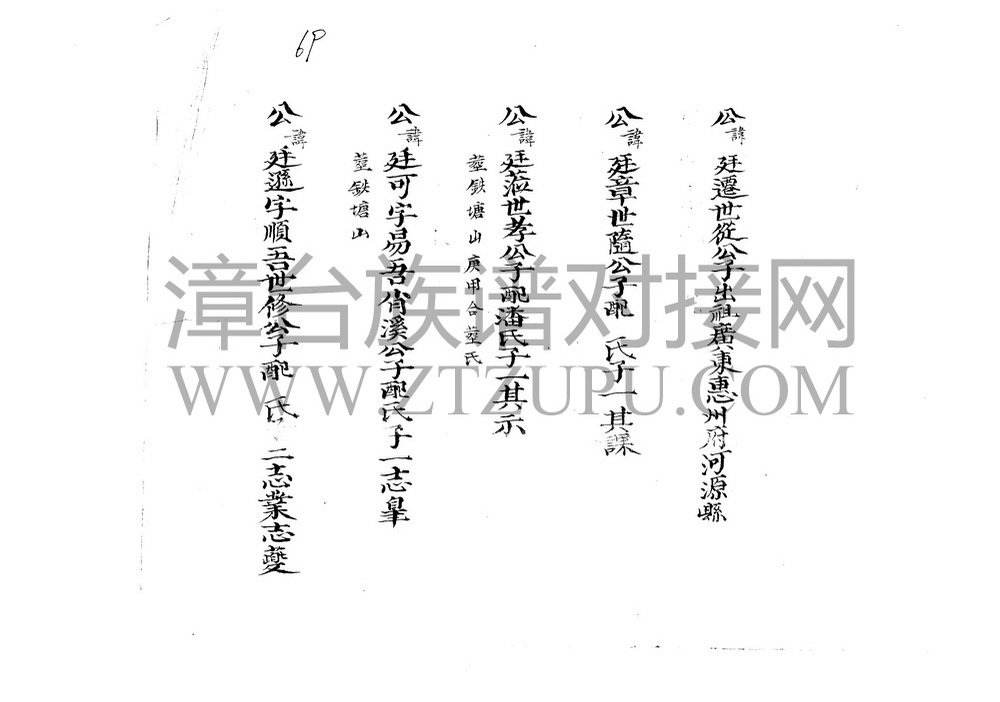 69
公諱廷遷世從公子出祖廣東惠州府河源縣
公諱廷章世隨公子配 氏子一其謀
公諱廷蒞世孝公子配潘氏子一其示
塟鉄塘山庚甲合塟氏
公諱廷可字易吾肖溪公子配氏子一志皐
塟鉄塘山
公諱廷遜字順吾世修公子配 氏 二志業志夔
漳台族谱对接网
WWW.ZTZUPU.COM